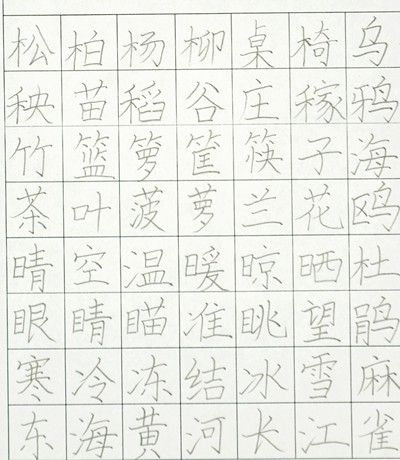 松柏杨柳桌椅乌
秧苗稻谷庄稼鸦
竹篮箩筐筷子海
茶叶菠萝兰花鸥
晴空温暖晾晒杜
眼睛瞄准眺望鹃
寒冷冻结冰雪麻
东海黄河长江雀